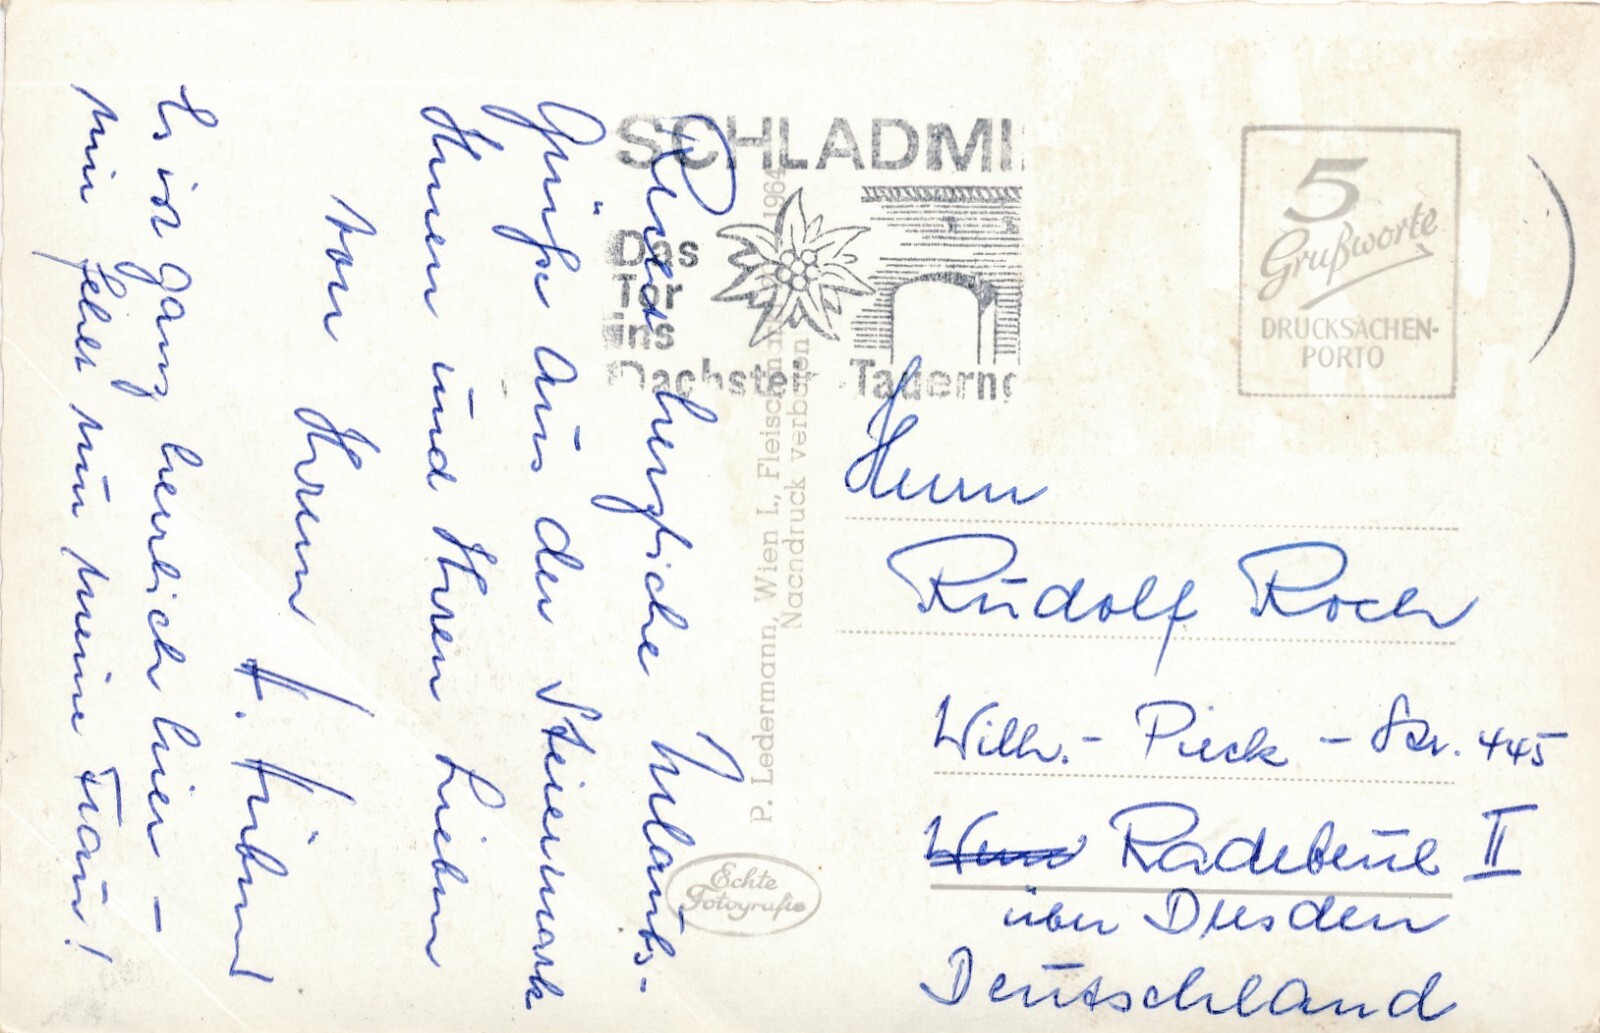 herzliche Urlaubs-
Grüße aus der Steiermark
Ihnen und Ihren Lieben
von Ihrem
H. Hübner
Es ist ganz herrlich hier –
mir fehlt nur meine Frau!
SCHLADMI
Das
Tor
ins
Dachstei Tauern
P. Ledermann, Wien I., 1964
Nachdruck verboten
Echte
Fotografie
5
Grußworte
DRUCKSACHEN-
PORTO
Herrn
Rudolf Roch
Wilh.-Pieck-Str. 445
Radebeul II
über Dresden
Deutschland